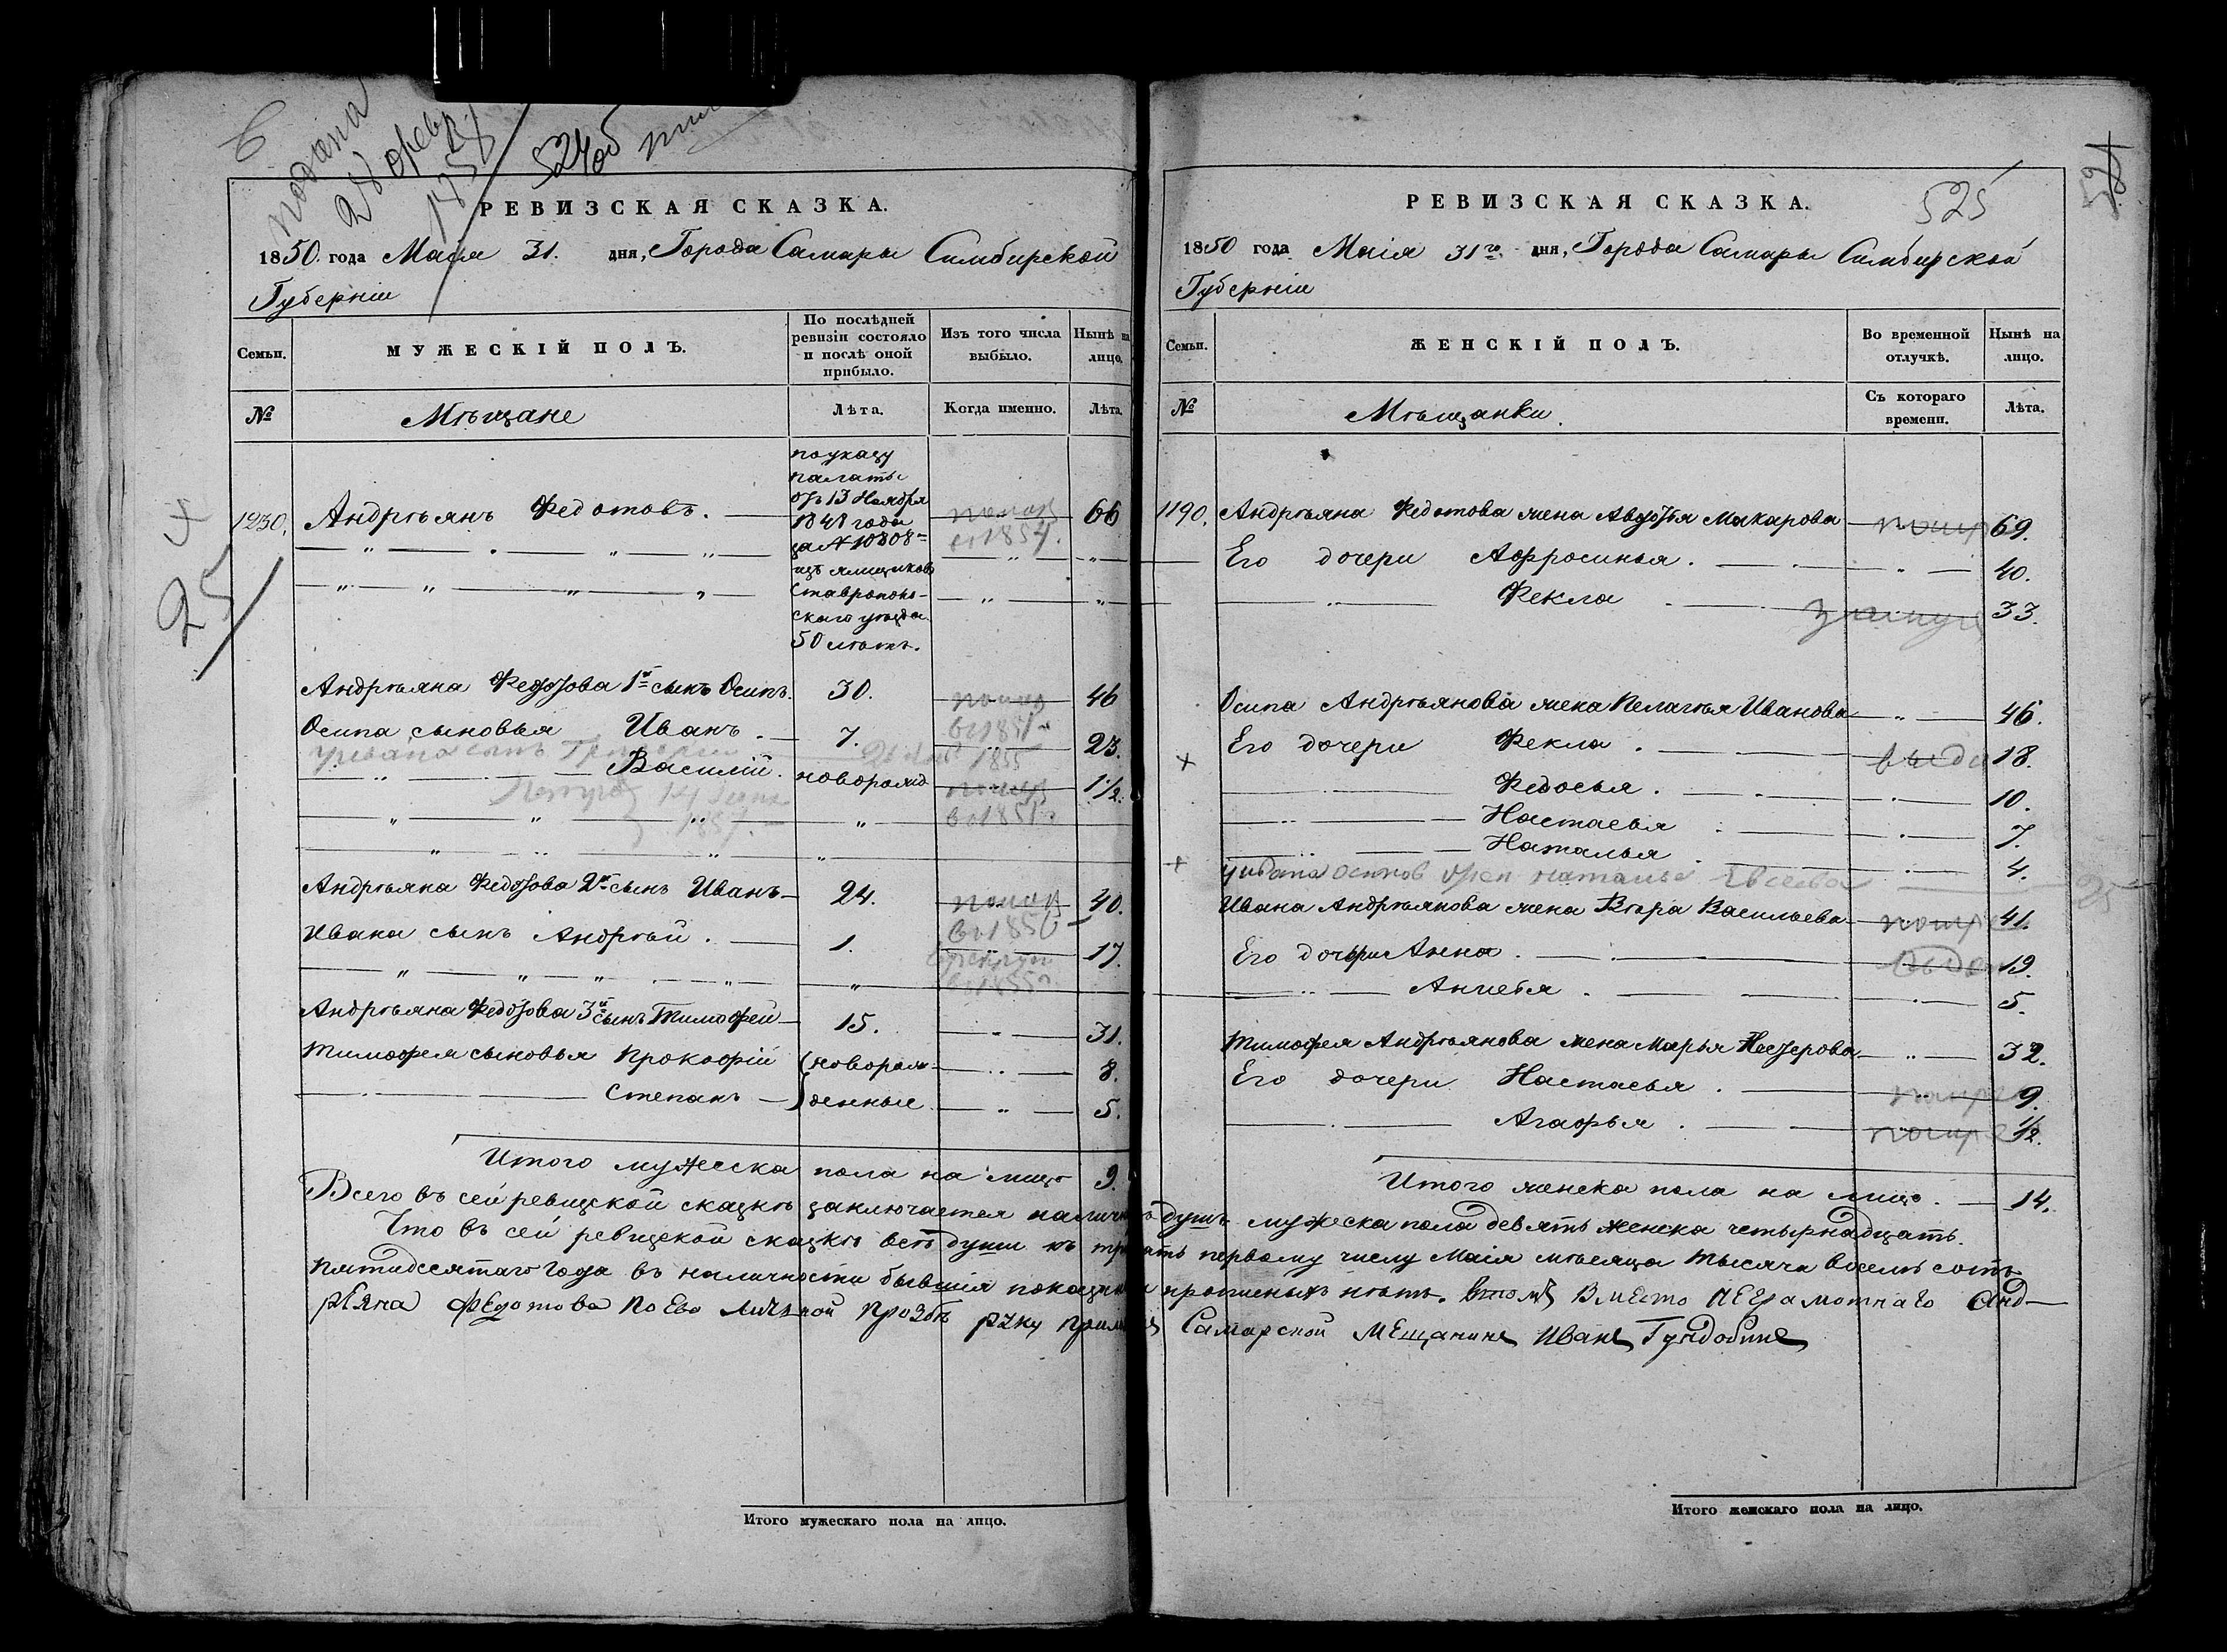 подана
28 февр.
1858
524об
РЕВИЗСКАЯ СКАЗКА.
1850. года Маія 31. дня, Города Самары Симбирской
Губерніи
Семьи.
МУЖЕСКІЙ ПОЛЪ.
По послѣдней ревизіи состояло и послѣ оной прибыло.
Изъ того числа выбыло.
Нынѣ на лицо.
№
Мѣщане
Лѣта.
Когда именно.
Лѣта.
по указу
палаты
отъ 13 Ноября
1848 года
за № 10808
изъ ямщиковъ
Ставрополь-
скаго уѣзда
50 лѣтъ.
1230. Андрѣянъ Федотовъ. 66
Андрѣяна Федотова 1й сынъ Осипъ. 30. 46
Осипа сыновья Иванъ. 7. 23.
1855
Василій. новорожд 1 1/2.
Андрѣяна Федотова 2й сынъ Иванъ 24. 40.
Ивана сынъ Андрѣй. 1. 17.
Андрѣяна Федотова 3й сынъ Тимофей 15. 31.
Тимофея сыновья Прокофій (новорож- 8.
Степанъ денные. 5.
Итого мужеска пола на лицо 9.
РЕВИЗСКАЯ СКАЗКА.
525
1850 года Маія 31го дня, Города Самары Симбирской
Губерніи
Семьи.
ЖЕНСКІЙ ПОЛЪ.
Во временной отлучкѣ.
Нынѣ на лицо.
№
Мѣщанки.
Съ котораго времени.
Лѣта.
1190. Андрѣяна Федотова жена Авдотья Макарова 69.
Его дочери Афросинья. 40.
Фекла 33.
Осипа Андрѣянова жена Пелагѣя Иванова 46.
Его дочери Фекла. 18.
Федосья. 10.
Настасья 7.
Наталья 4.
Ивана Андрѣянова жена Вѣра Васильева 41.
Его дочери Анна. 19.
Анисья. 5.
Тимофея Андрѣянова жена Марья Нестерова 32.
Его дочери Настасья. 9.
Агафья. 1/2.
Итого женска пола на лицо. 14.
Всего въ сей ревизской сказкѣ заключается налично душъ мужеска пола девять женска четырнадцать.
Что въ сей ревизской сказкѣ всѣ души къ тридцать первому числу Маія мѣсяца тысяча восемь сотъ
пятидесятаго года въ наличности бывшія показаны и прописныхъ нѣтъ. Вместо неграмотнаго Анд-
рѣяна Федотова по Ево личьной прозбѣ руку прилож Самарской Мещанинъ Иванъ Гундобинъ
Итого мужескаго пола на лицо.
Итого женскаго пола на лицо.